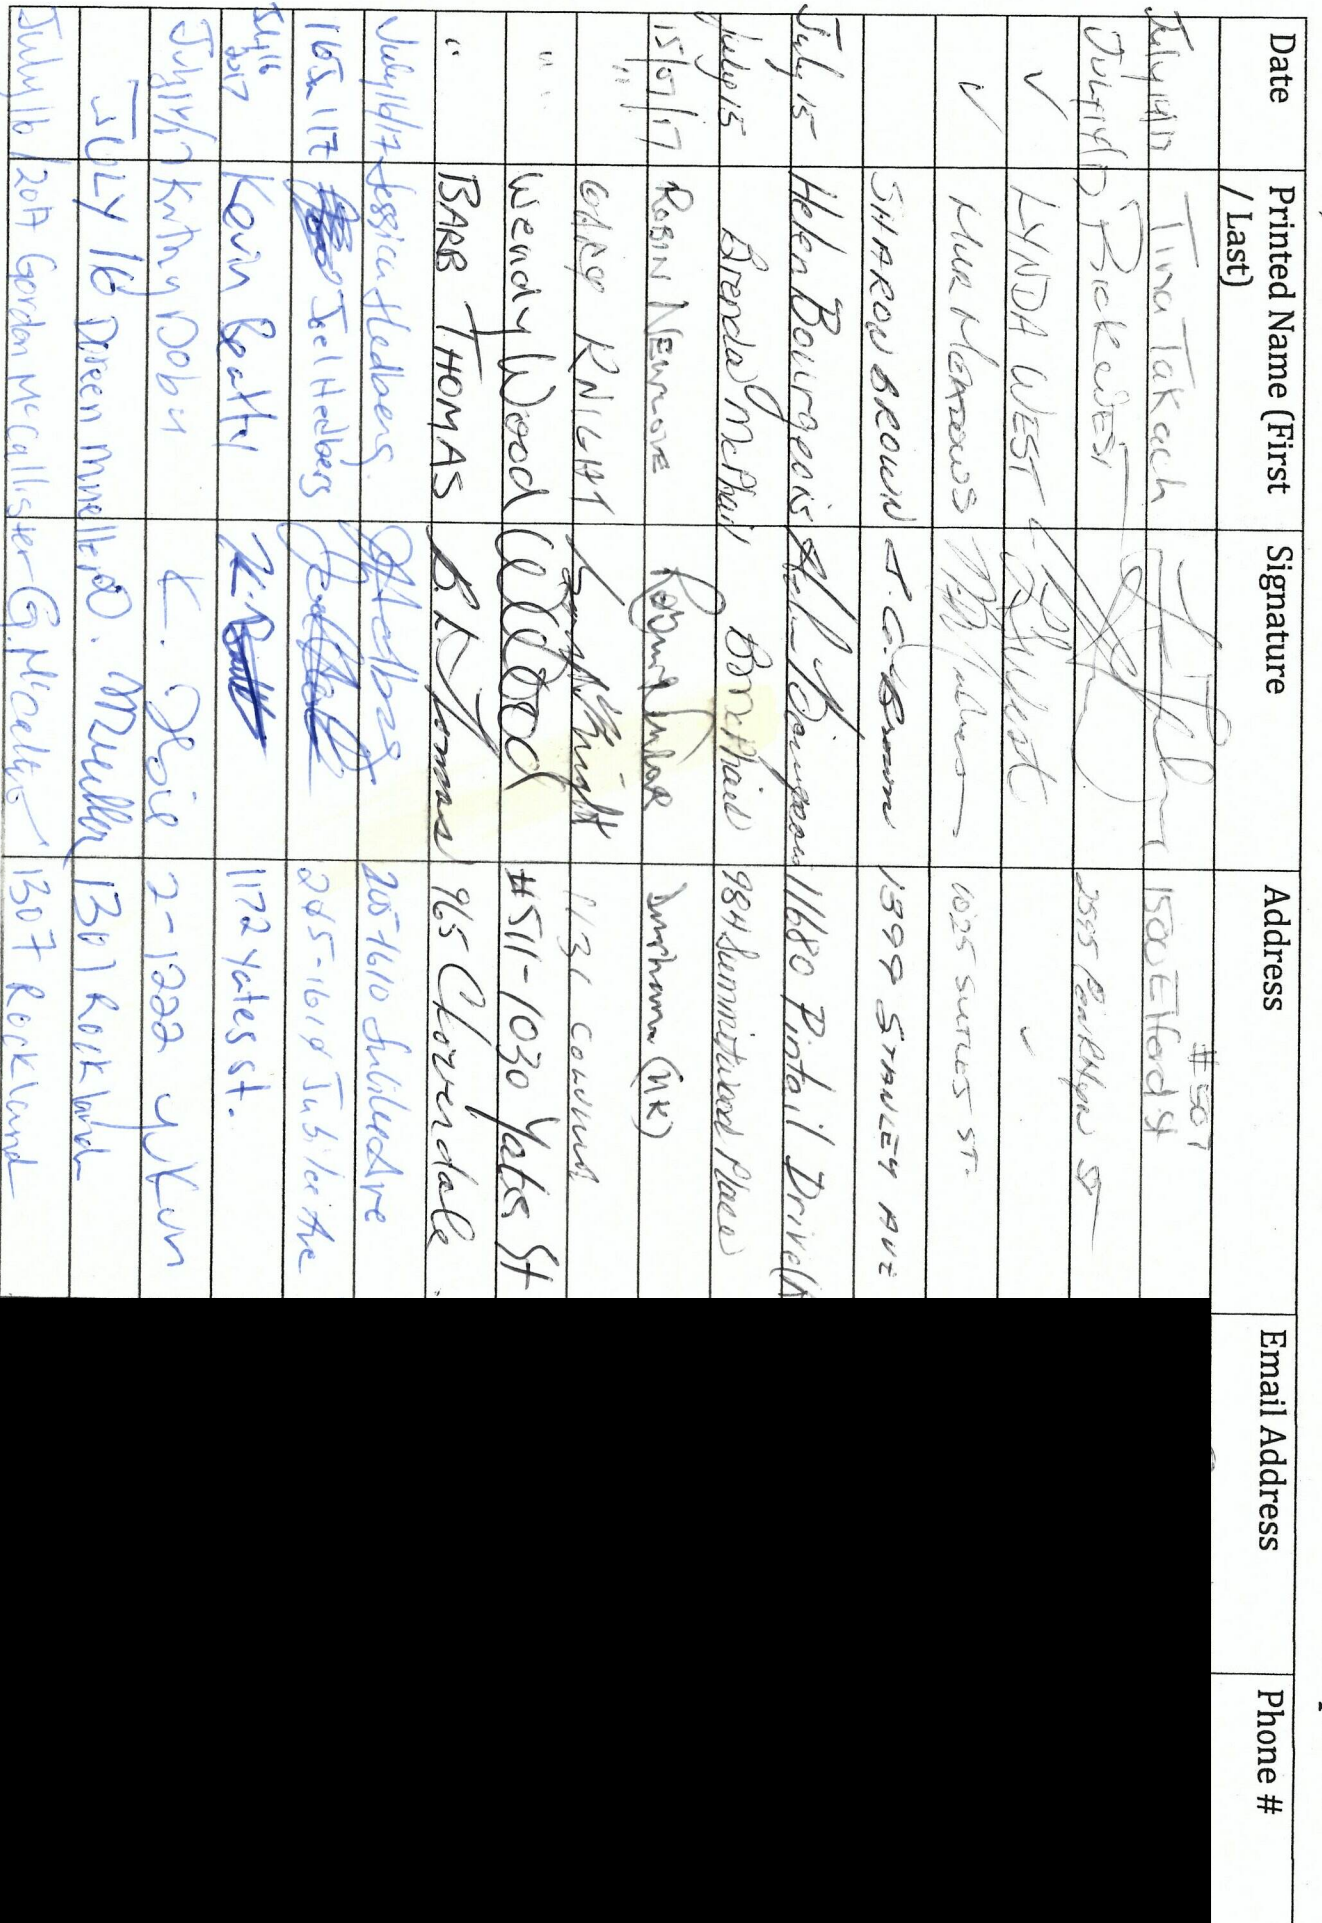 Date Printed Name (First / Last) Signature Address Email Address Phone #
July 14/17 Tina Takach #507 1500 Elford St
July 14/17 Rick WEST St
✓ LYNDA WEST ✓
✓ MEADOWS 1025 ST.
SHARON BROWN S. C. Brown 1399 STANLEY AVE
July 15 Helen Bourgeois Helen Bourgeois 11680 Pintail Drive
July 15 Brenda McPhail B McPhail 984 Summitwood Place
15/07/17 ROBIN NEWLOVE Robin (UK)
" KNIGHT Knight
" Wendy Wood W Wood #511-1030 Yates St
" BARB THOMAS B Thomas 965 Cloverdale
July 16/17 Jessica Hedberg J Hedberg 205-1610 Jubilee Ave
Joel Hedberg Jubilee Ave
July 16 2017 Kevin Beatty K. 1172 Yates st.
K. 2-1222
JULY 16 Doreen Mueller D. Mueller 1307 Rockland
July 16/2017 Gordon McCallister G. McCallister 1307 Rockland